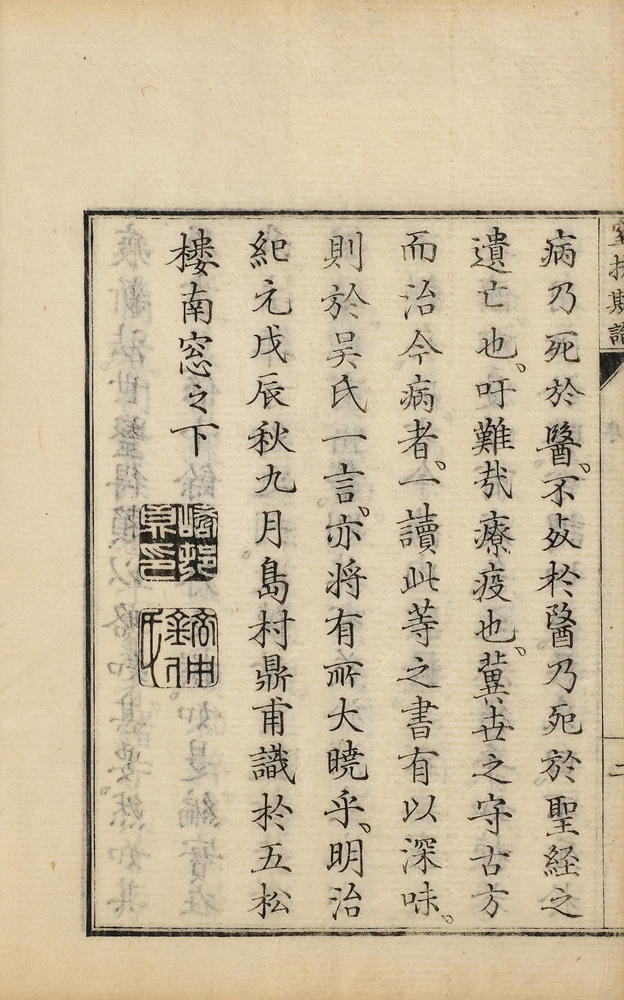 病乃死於醫、不死於醫乃死於聖經之
遺亡也、吁難哉療疫也、冀世之守古方
而治今病者、一讀此等之書有以深味、
則於吴氏一言、亦将有所大曉乎、明治
紀元戊辰秋九月島村鼎甫識於五松
樓南窓之下
二